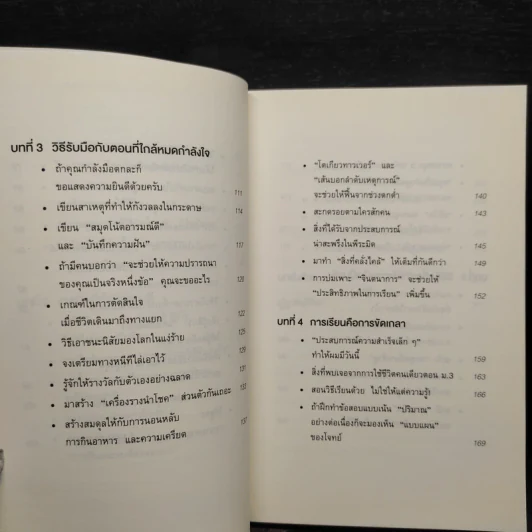 บทที่ 3 วิธีรับมือกับตอนที่ใกล้หมดกำลังใจ
• ถ้าคุณกำลังมืดตกละก็
ขอแสดงความยินดีด้วยครับ 111
• เขียนสาเหตุที่ทำให้กังวลลงในกระดาษ 114
• เขียน “สมุดโน้ตอารมณ์ดี”
และ “บันทึกความฝัน” 117
• ถ้ามีคนบอกว่า “จะช่วยให้ความปรารถนา
ของคุณเป็นจริงหนึ่งข้อ” คุณจะขออะไร 120
• เกณฑ์ในการตัดสินใจ
เมื่อชีวิตเดินมาถึงทางแยก 122
• วิธีเอาชนะนิสัยมองโลกในแง่ร้าย 125
• จงเตรียมทางหนีทีไล่เอาไว้
• รู้จักให้รางวัลกับตัวเองอย่างฉลาด
• มาสร้าง “เครื่องรางนำโชค” ส่วนตัวกันเถอะ
• สร้างสมดุลให้กับการนอนหลับ 137
การกินอาหาร และความเครียด
• “โตเกียวทาวเวอร์” และ
“เส้นบอกลำดับเหตุการณ์”
จะช่วยให้ฟื้นจากช่วงตกต่ำ 140
• สะกดรอยตามใครสักคน 143
• สิ่งที่ได้รับจากประสบการณ์
น่าสะพรึงในพีระมิด 145
• มาทำ “สิ่งที่คลั่งไคล้” ให้เต็มที่กันดีกว่า 149
• การบ่มเพาะ “จินตนาการ” จะช่วยให้
“ประสิทธิภาพในการเรียน” เพิ่มขึ้น 152
บทที่ 4 การเรียนคือการขัดเกลา
• “ประสบการณ์ความสำเร็จเล็ก ๆ”
ทำให้ผมมีวันนี้ 159
• สิ่งที่พบเจอจากการใช้ชีวิตคนเดียวตอน ม.3 163
• สอนวิธีเรียนด้วย ไม่ใช่ให้แต่ความรู้ 166
• ถ้าฝึกทำข้อสอบแบบเน้น “ปริมาณ”
อย่างต่อเนื่องก็จะมองเห็น “แบบแผน”
ของโจทย์ 169